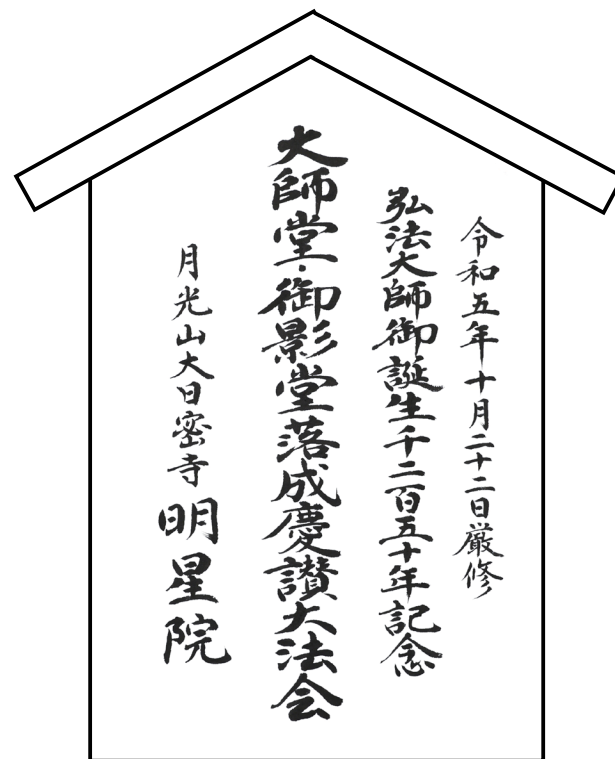 令和五年十月二十二日厳修
弘法大師御誕生千二百五十年記念
大師堂・御影堂落成慶讃大法会
月光山大日密寺 明星院